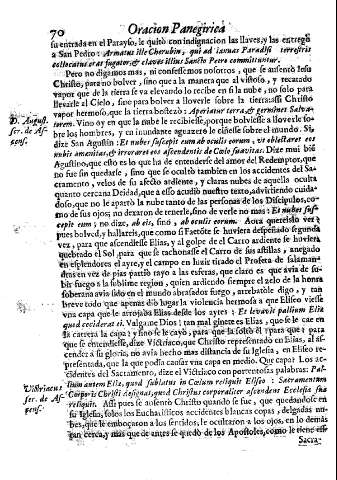 70
Oracion Panegirica
su entrada en el Parayso, le quitò con indignacion las llaves, y las entregò
a San Pedro: Armatus ille Cherubin, qui ad ianuas Paradisi terrestris
collocatus erat fugatur, & claves illius Sancto Petro committuntur.
Pero no digamos mas, ni confessemos nosotros, que se ausentò Iesu
Christo, para no bolver, sino que a la manera que al vistoso, y recatado
vapor que de la tierra se va elevando le recibe en si la nube, no solo para
llevarle al Cielo, sino para bolver a lloverle sobre la tierra assi Christo
vapor hermoso, que la tierra bostezò: Aperiatur terra, & germinet Salva-
torem. Vino oy en que la nube le recibiesse, porque bolviesse a lloverle so-
bre los hombres, y en inundante aguazero le ciñesse sobre el mundo. Si
dize San Agustin: Et nubes suscepit eum ab oculis eorum, ut oblestaret eos
nubis amænitas, & irroraret eos ascendentis de Cœlo suavitas. Dize mui bien
Agustino, que esto es lo que ha de entenderse del amor del Redemptor, que
no fue sin quedarse, sino que se ocultò tambien en los accidentes del Sa-
cramento, velos de su afecto ardiente, y claras nubes de aquella oculta
quanto cercana Deidad, que a esso acudiò nuestro texto, advirtiendo cuida-
doso, que no le apartò la nube tanto de las personas de los Discipulos, co-
mo de sus ojos; no dexaron de tenerle, sino de verle no mas: Et nubes sus-
cepit eum; no dize, ab eis, sinò, ab oculis eorum. Aora creo yo
pues bolved, y hallareis, que como si Faetòte se huviera despeñado segunda
vez, para que ascendiesse Elias, y al golpe de el Carro ardiente se huviera
quebrado el Sol, para que se rachonasse el Carro de sus astillas, anegado
en esplendores el ayre, y el campo en luzir tirado el Profeta de salaman-
dras en vez de pias partiò rayo a las esferas, que claro es que avia de su-
bir fuego a la sublime region, quien ardiendo siempre el zelo de la honra
soberana avia sido en el mundo abrasador fuego, arrebatòle digo, y tan
breve todo que apenas diò lugar la violencia hermosa a que Eliseo viesse
una capa que le arrojaba Elias desde los ayres: Et levavit pallium Elia
quod ceciderat ei. Valgame Dios! tan mal ginete es Elias, que se le cae en
la carrera la capa? y sino se le cayò, para que la soltò èl? para que? para
que se entendiesse, dize Victriaco, que Christo representado en Elias, al as-
cender a su gloria, no avia hecho mas distancia de su Iglesia, en Eliseo re-
presentada, que la que podia causar una capa en medio. Que capa? Los ac-
cidentes del Sacramento, dize el Victriaco con portentosas palabras: Pal-
lium autem Eliæ, quod sublatus in Cœlum reliquit Eliseo: Sacramentum
Corporis Christi designat, quod Christus corporaliter ascendens Ecclesia sua
reliquit. Assi pues se ausentò Christo quando se fue, que quedandose en
su Iglesia, solos los Eucharisticos accidentes blancas capas, delgadas nu-
bes, que le emboçaron a los sentidos, le ocultaron a los ojos, en lo demàs
tan cerca, y mas que de antes se quedò de los Apostoles, como le tiene esse
Sacra-
D. August.
ser. de As-
çens.
Victriacus
ser. de As-
çens.